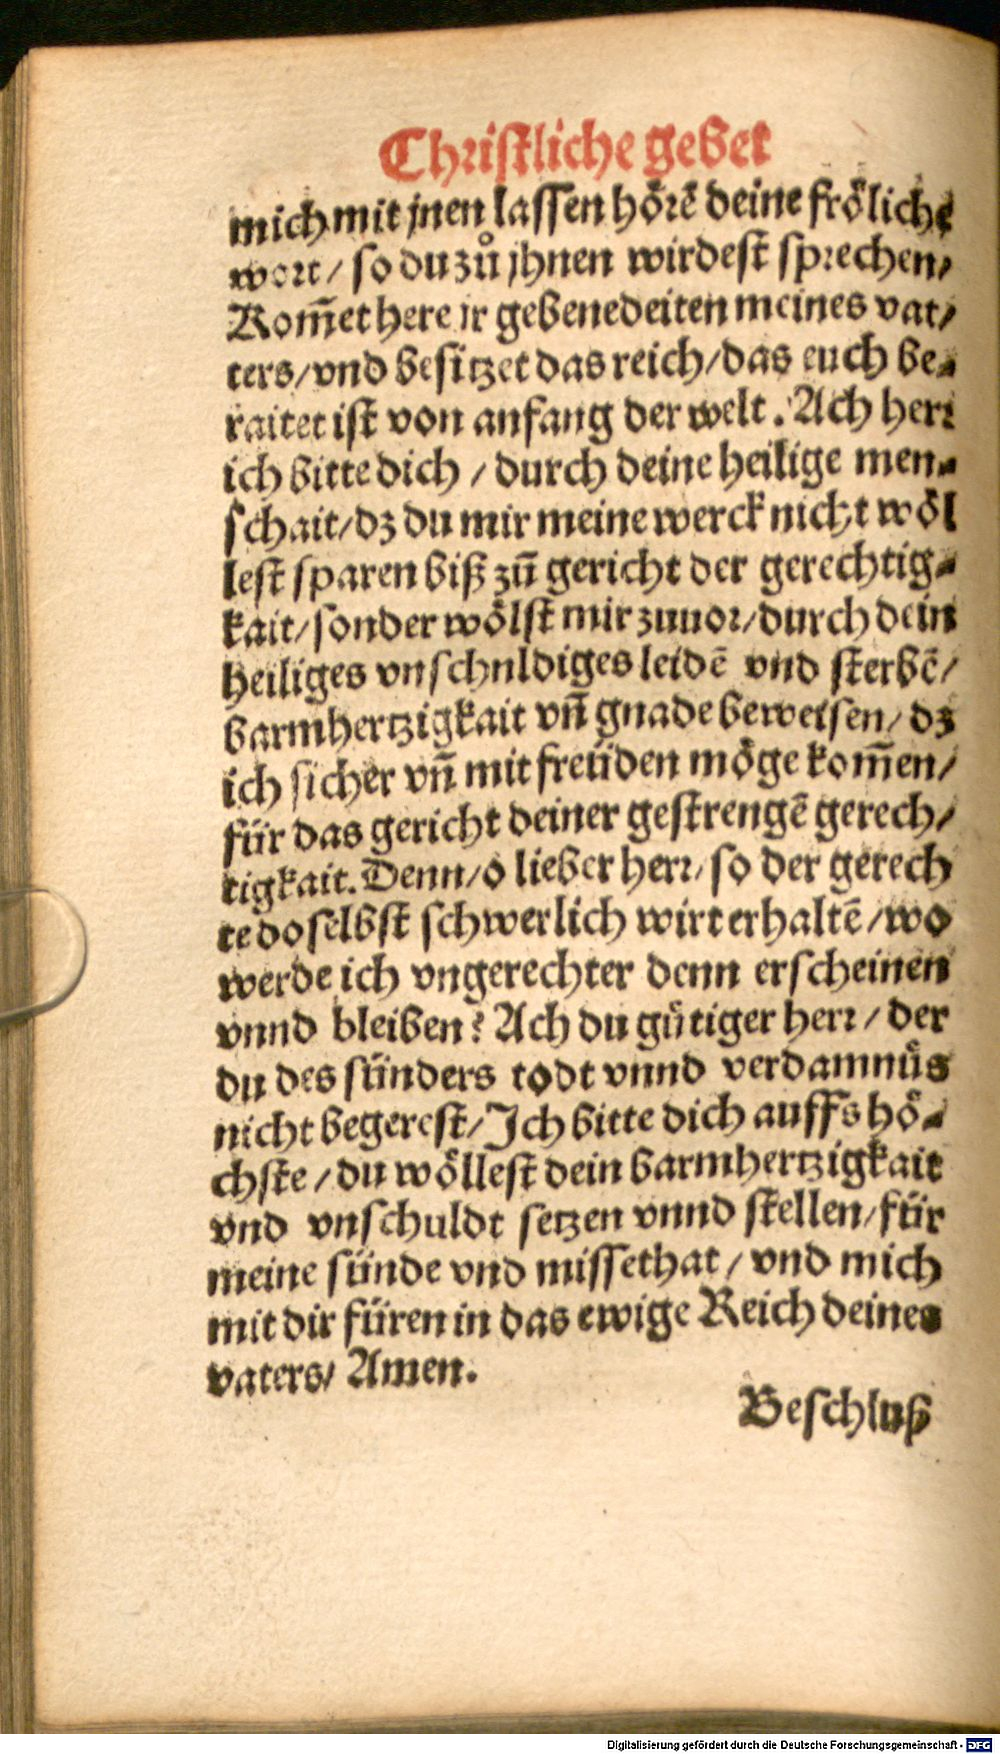 Christliche gebet
mich mit jnen lassen hörē deine fröliche
wort / so du zů jhnen wirdest sprechen/
Kom̄et here ir gebenedeiten meines vat/
ters/vnd besitzet das reich/das euch be-
raitet ist von anfang der welt. Ach herr
ich bitte dich / durch deine heilige men-
schait/dz du mir meine werck nicht wöl
lest sparen biß zū gericht der gerechtig-
kait/sonder wölst mir zuuor/durch dein
heiliges vnschuldiges leidē vnd sterbē/
barmhertzigkait vn̄ gnade beweisen/dz
ich sicher vn̄ mit freüden möge kom̄en/
für das gericht deiner gestrengē gerech/
tigkait. Denn/o lieber herr/so der gerech
te doselbst schwerlich wirt erhaltē/wo
werde ich vngerechter denn erscheinen
vnnd bleiben? Ach du gütiger herr/der
du des sünders todt vnnd verdamnüs
nicht begerest/Ich bitte dich auffs hö-
chste / du wöllest dein barmhertzigkait
vnd vnschuldt setzen vnnd stellen/für
meine sünde vnd missethat / vnd mich
mit dir füren in das ewige Reich deines
vaters/ Amen.
Beschluß
Digitalisierung gefördert durch die Deutsche Forschungsgemeinschaft - DFG